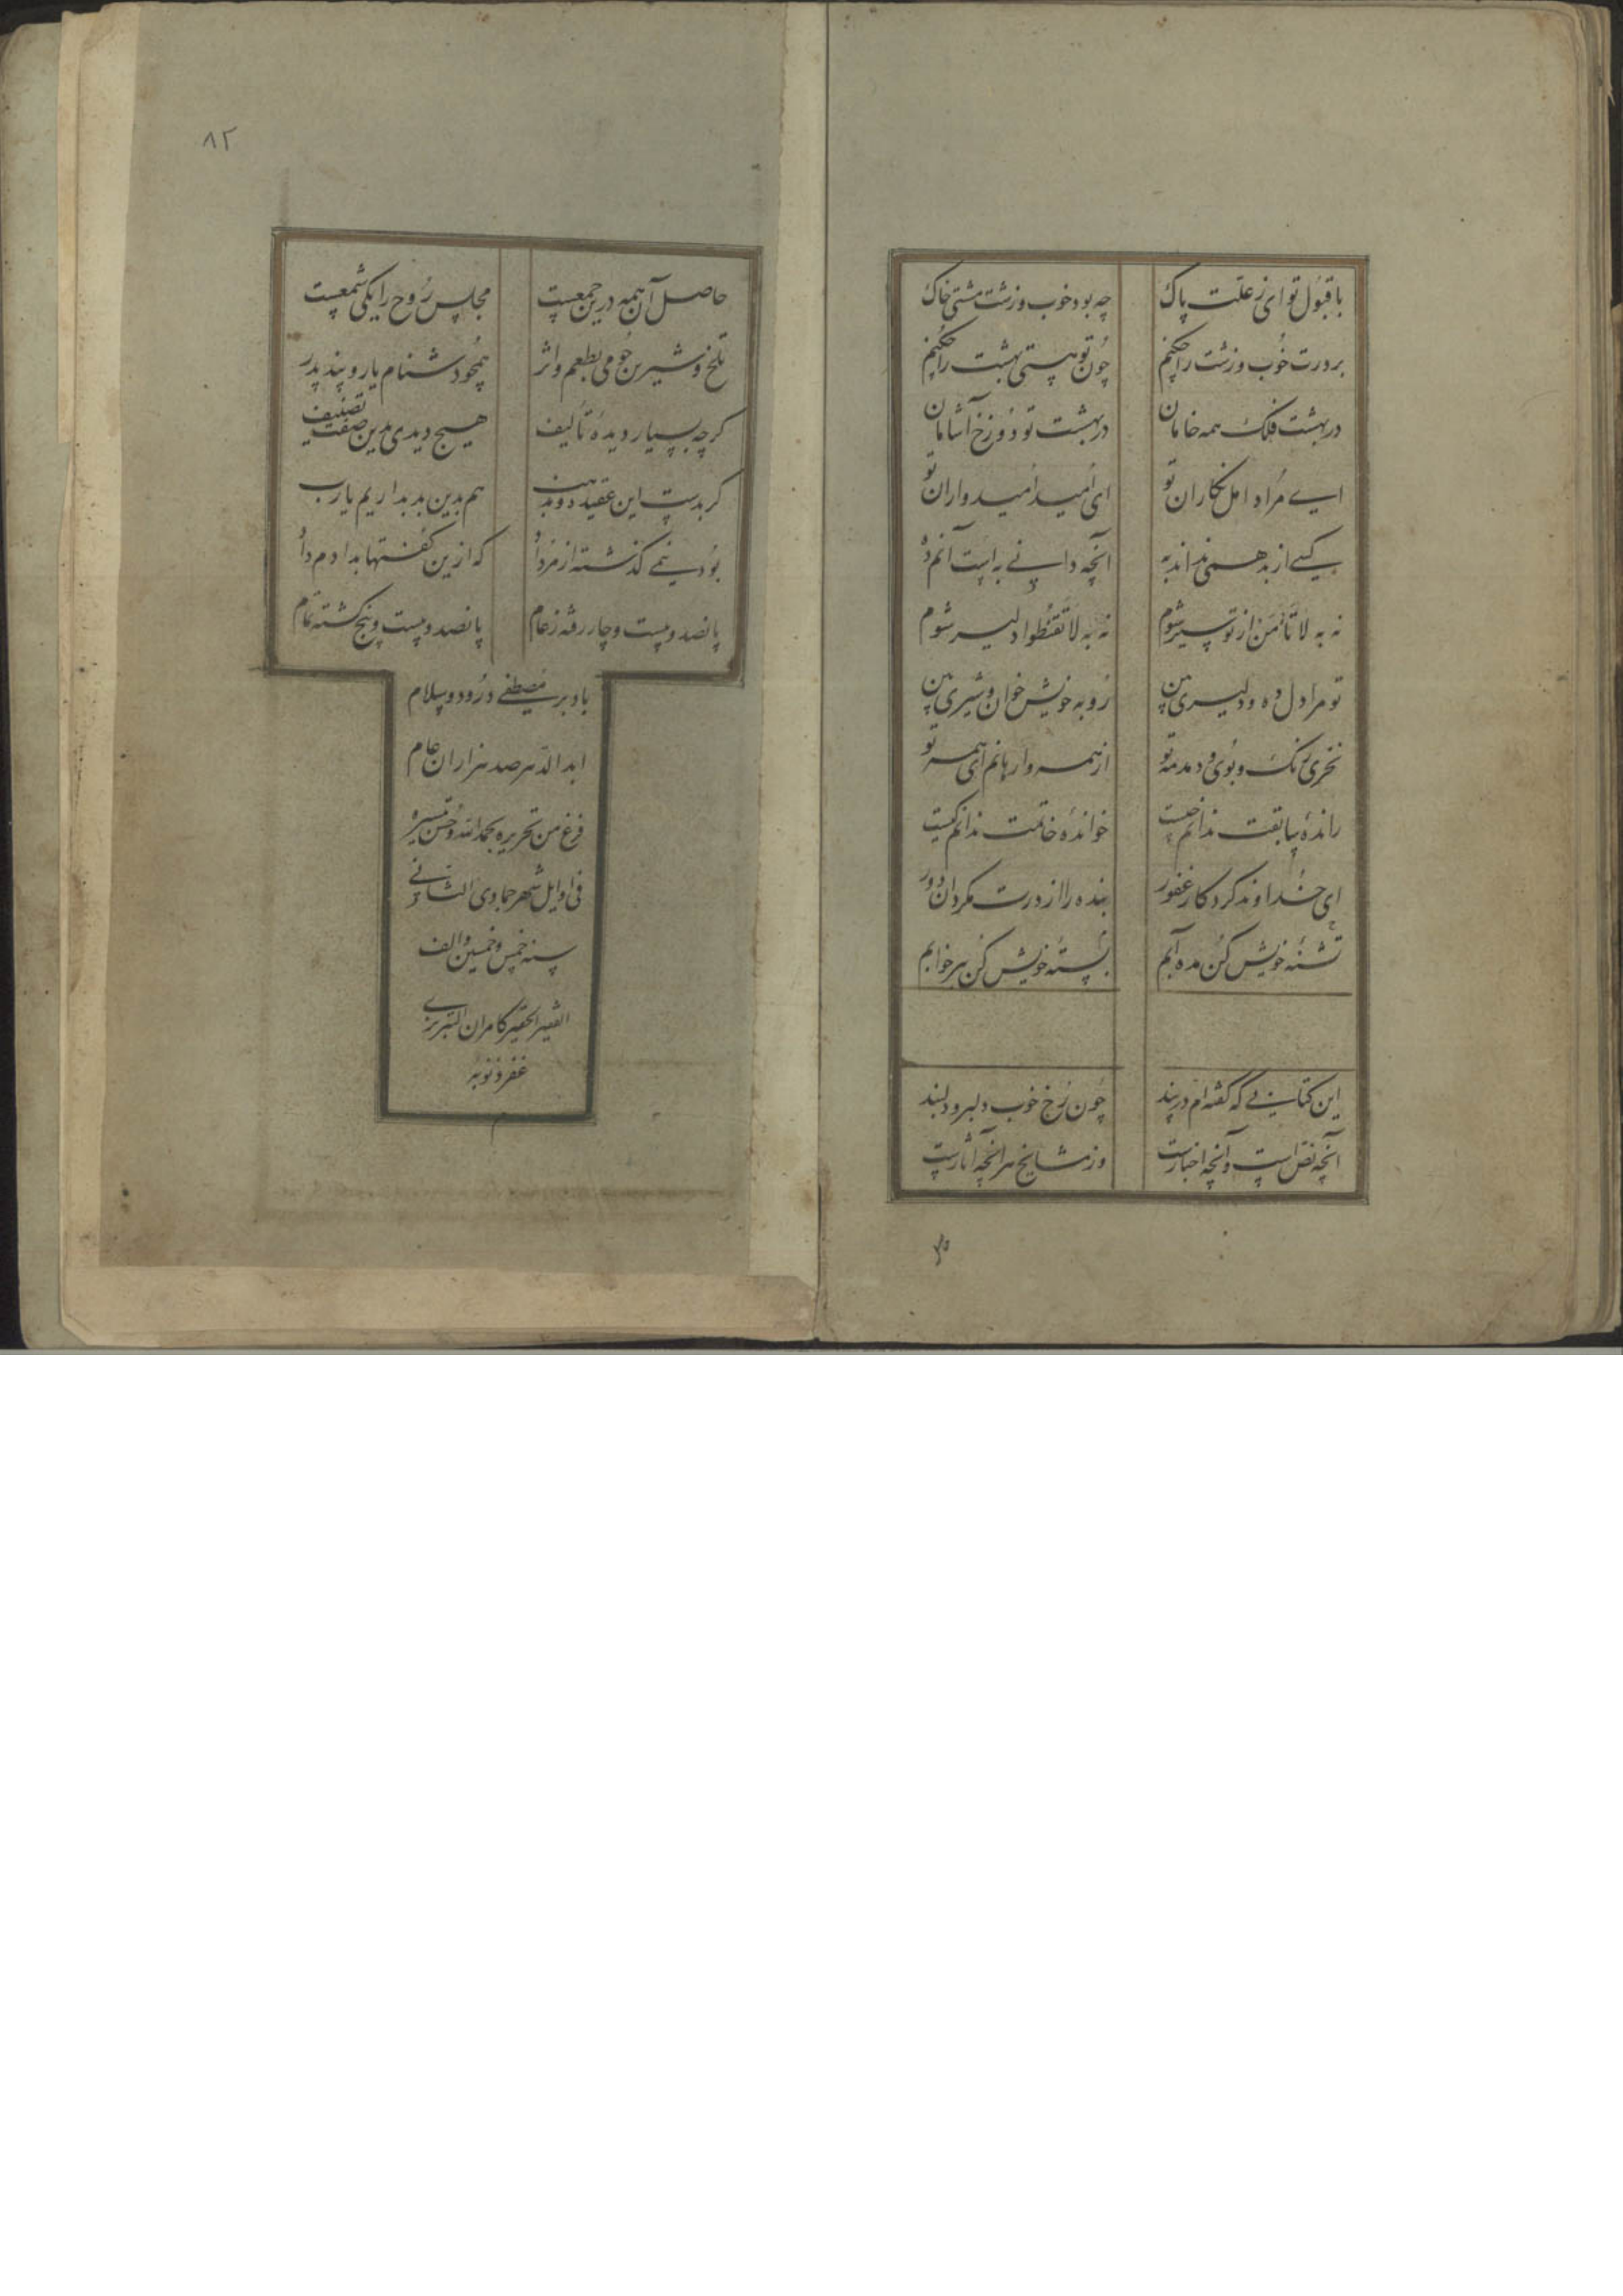 با قبول تو ای ز علت پاک چه بود خوب و زشت مشتی خاک
بر درت خوب و زشت را چکنم چون تو هستی بهشت را چکنم
در بهشت فلک همه خامان در بهشت تو دوزخ آشامان
ای مراد امل نکاران تو ای امید امیدواران تو
کسی از بد همی نداند به آنچه دانی به است آنم ده
نه به لا تأمن از تو سیر شوم نه به لا تقنطوا دلیر شوم
تو مرا دل ده و دلیری بین رو به خویش خوان و شیری بین
نخری رنک و بوی و دمدمه تو از همه وارهانم ای همه تو
راندهٔ سابقت ندانم چیست خواندهٔ خاتمت ندانم کیست
ای خداوند کردکار غفور بنده را از درت مکردان دور
تشنهٔ خویش کن مده آبم بستهٔ خویش کن ببر خوابم
این کتابی که کفته‌ام در پند چون رخ خوب دلبر و دلبند
آنچه نص است و آنچه اخبارست وز مشایخ هر آنچه آثارست
۸۲
حاصل آن همه درین جمعست مجلس روح را یکی شمعست
تلخ و شیرین چو می بطعم و اثر همچو دشنام یار و پند پدر
کرچه بسیار دیدهٔ تألیف هیچ دیدی بدین صفت تصنیف
کر بدست این عقیده و مذهب هم بدین بد بداریم یارب
بود نیمی کذشته از مرداد که ازین کفتنها بدادم داد
پانصد و بیست و چار رفته ز عام پانصد و بیست و پنج کشته تمام
باد بر مصطفی درود و سلام
ابد الدهر صد هزاران عام
فرغ من تحریره بحمد الله و حسن تیسیره
فی اوایل شهر جمادی الثانی
سنه خمس و خمسین و الف
الفقیر الحقیر کامران التبریزی
غفر ذنوبه